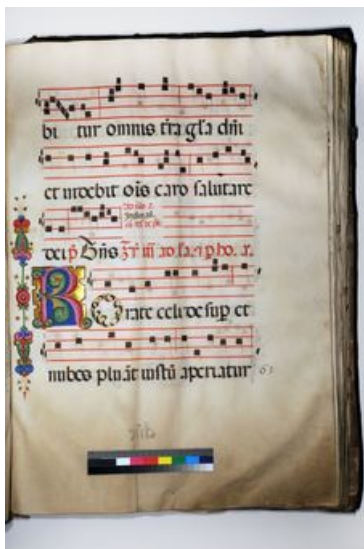 bi tur omnis tr̃a gl̃a dñi
et videbit oĩs caro salutare
dei
Rorate celi desup et
nubes pluãt iustũ aperiatur